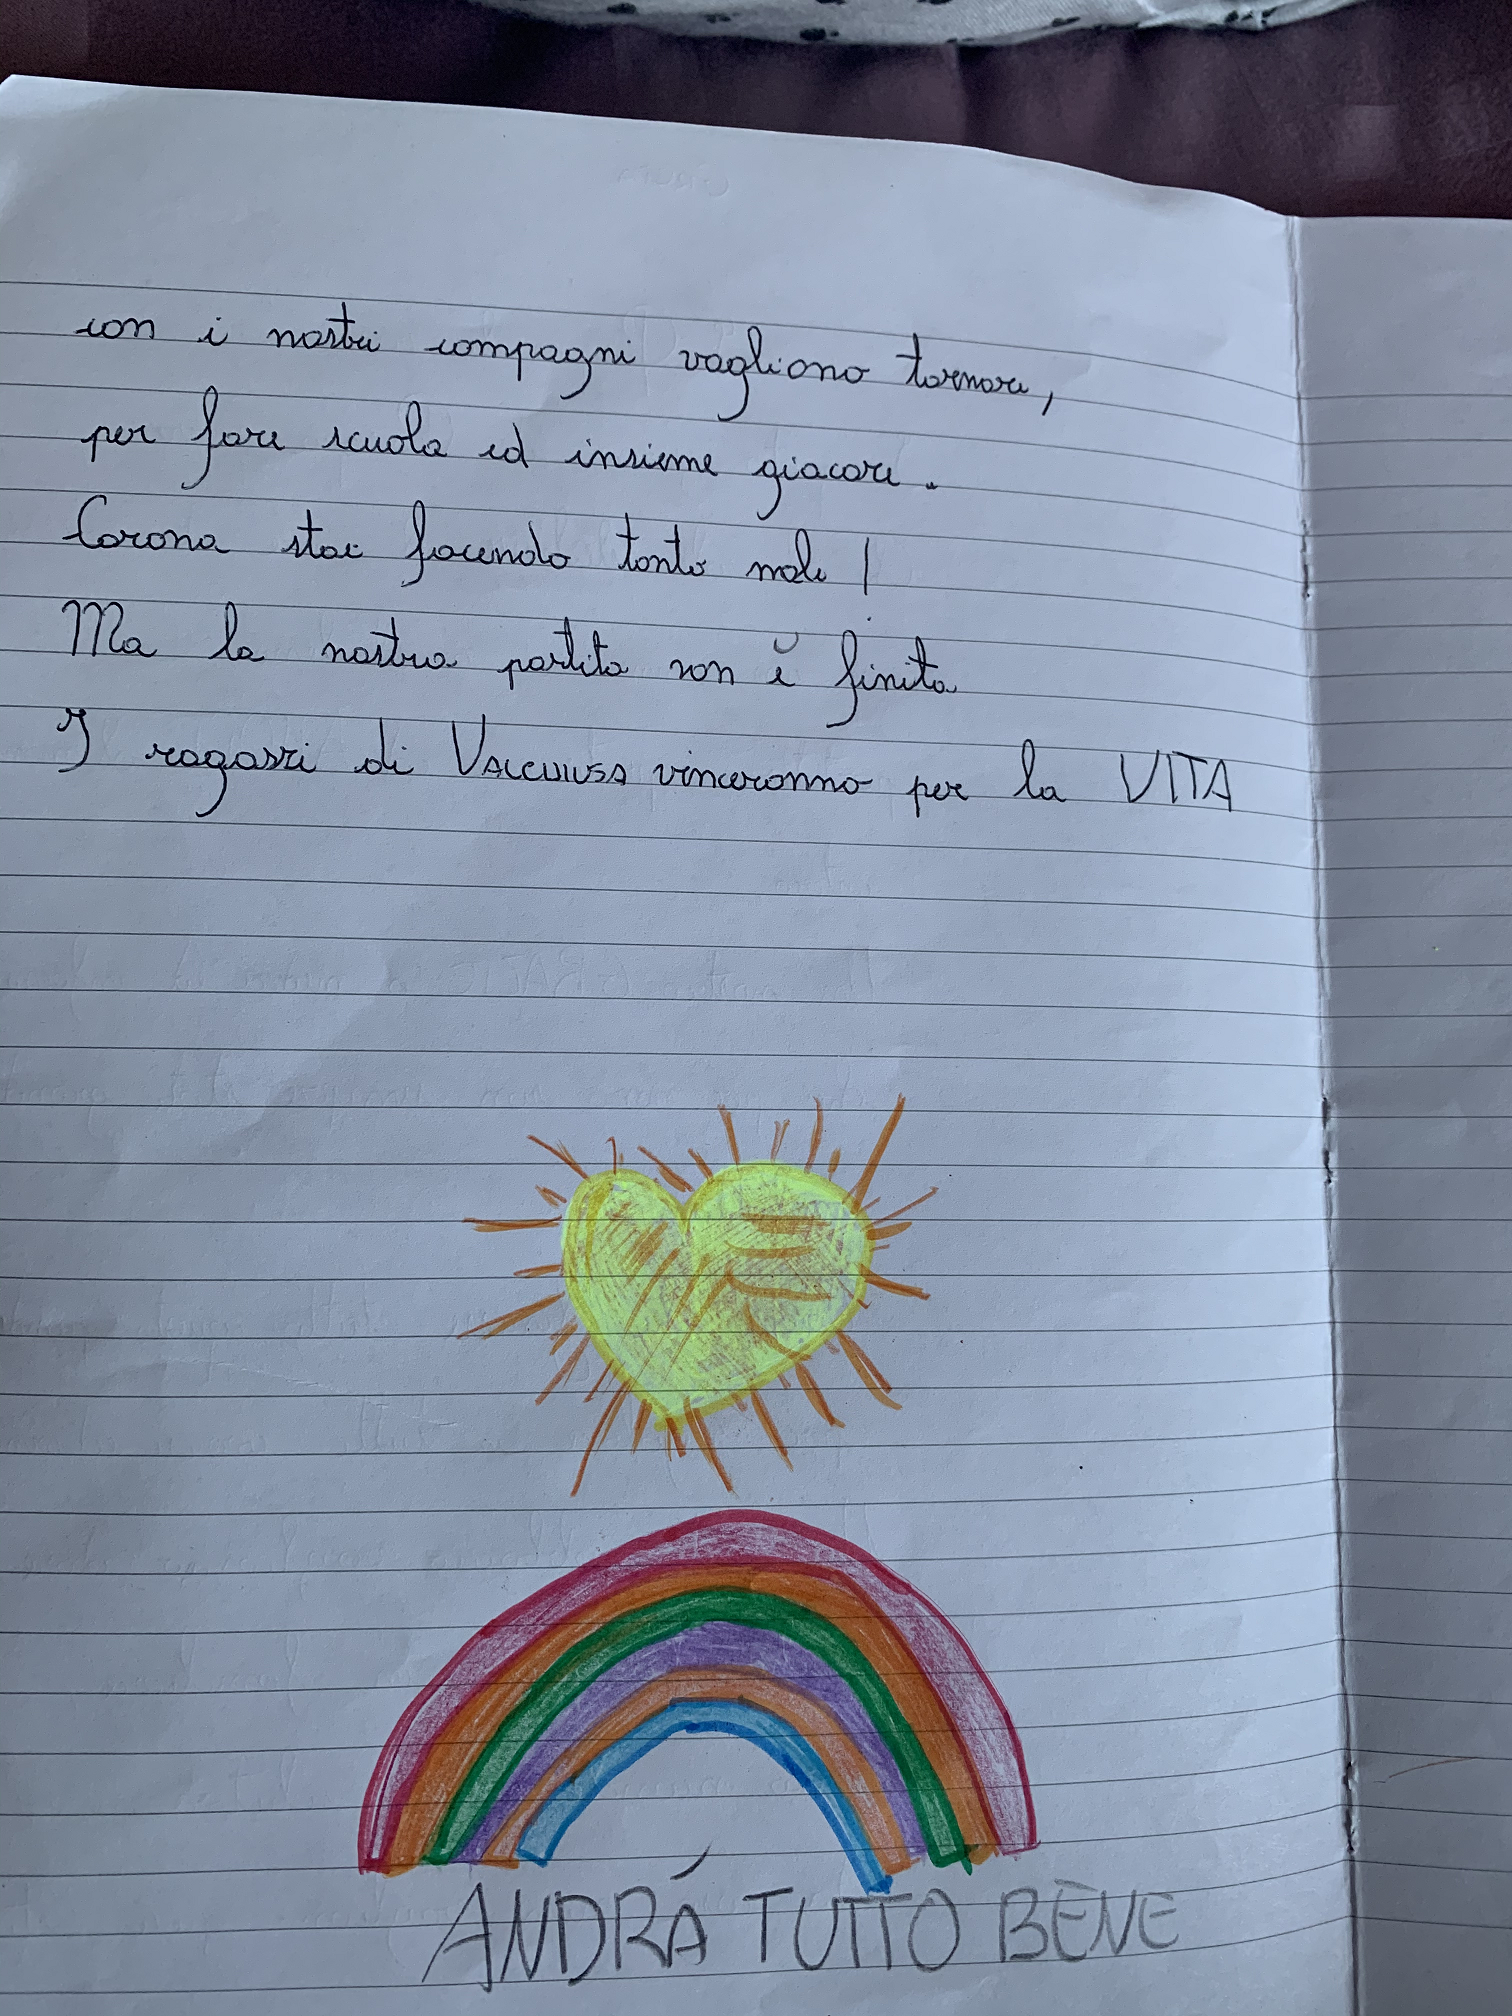 con i nostri compagni vogliono tornare,
per fare scuola ed insieme giocare.
Corona stai facendo tanto male!
Ma la nostra partita non è finita
I ragazzi di VALCHIUSA vinceranno per la VITA
ANDRÁ TUTTO BENE